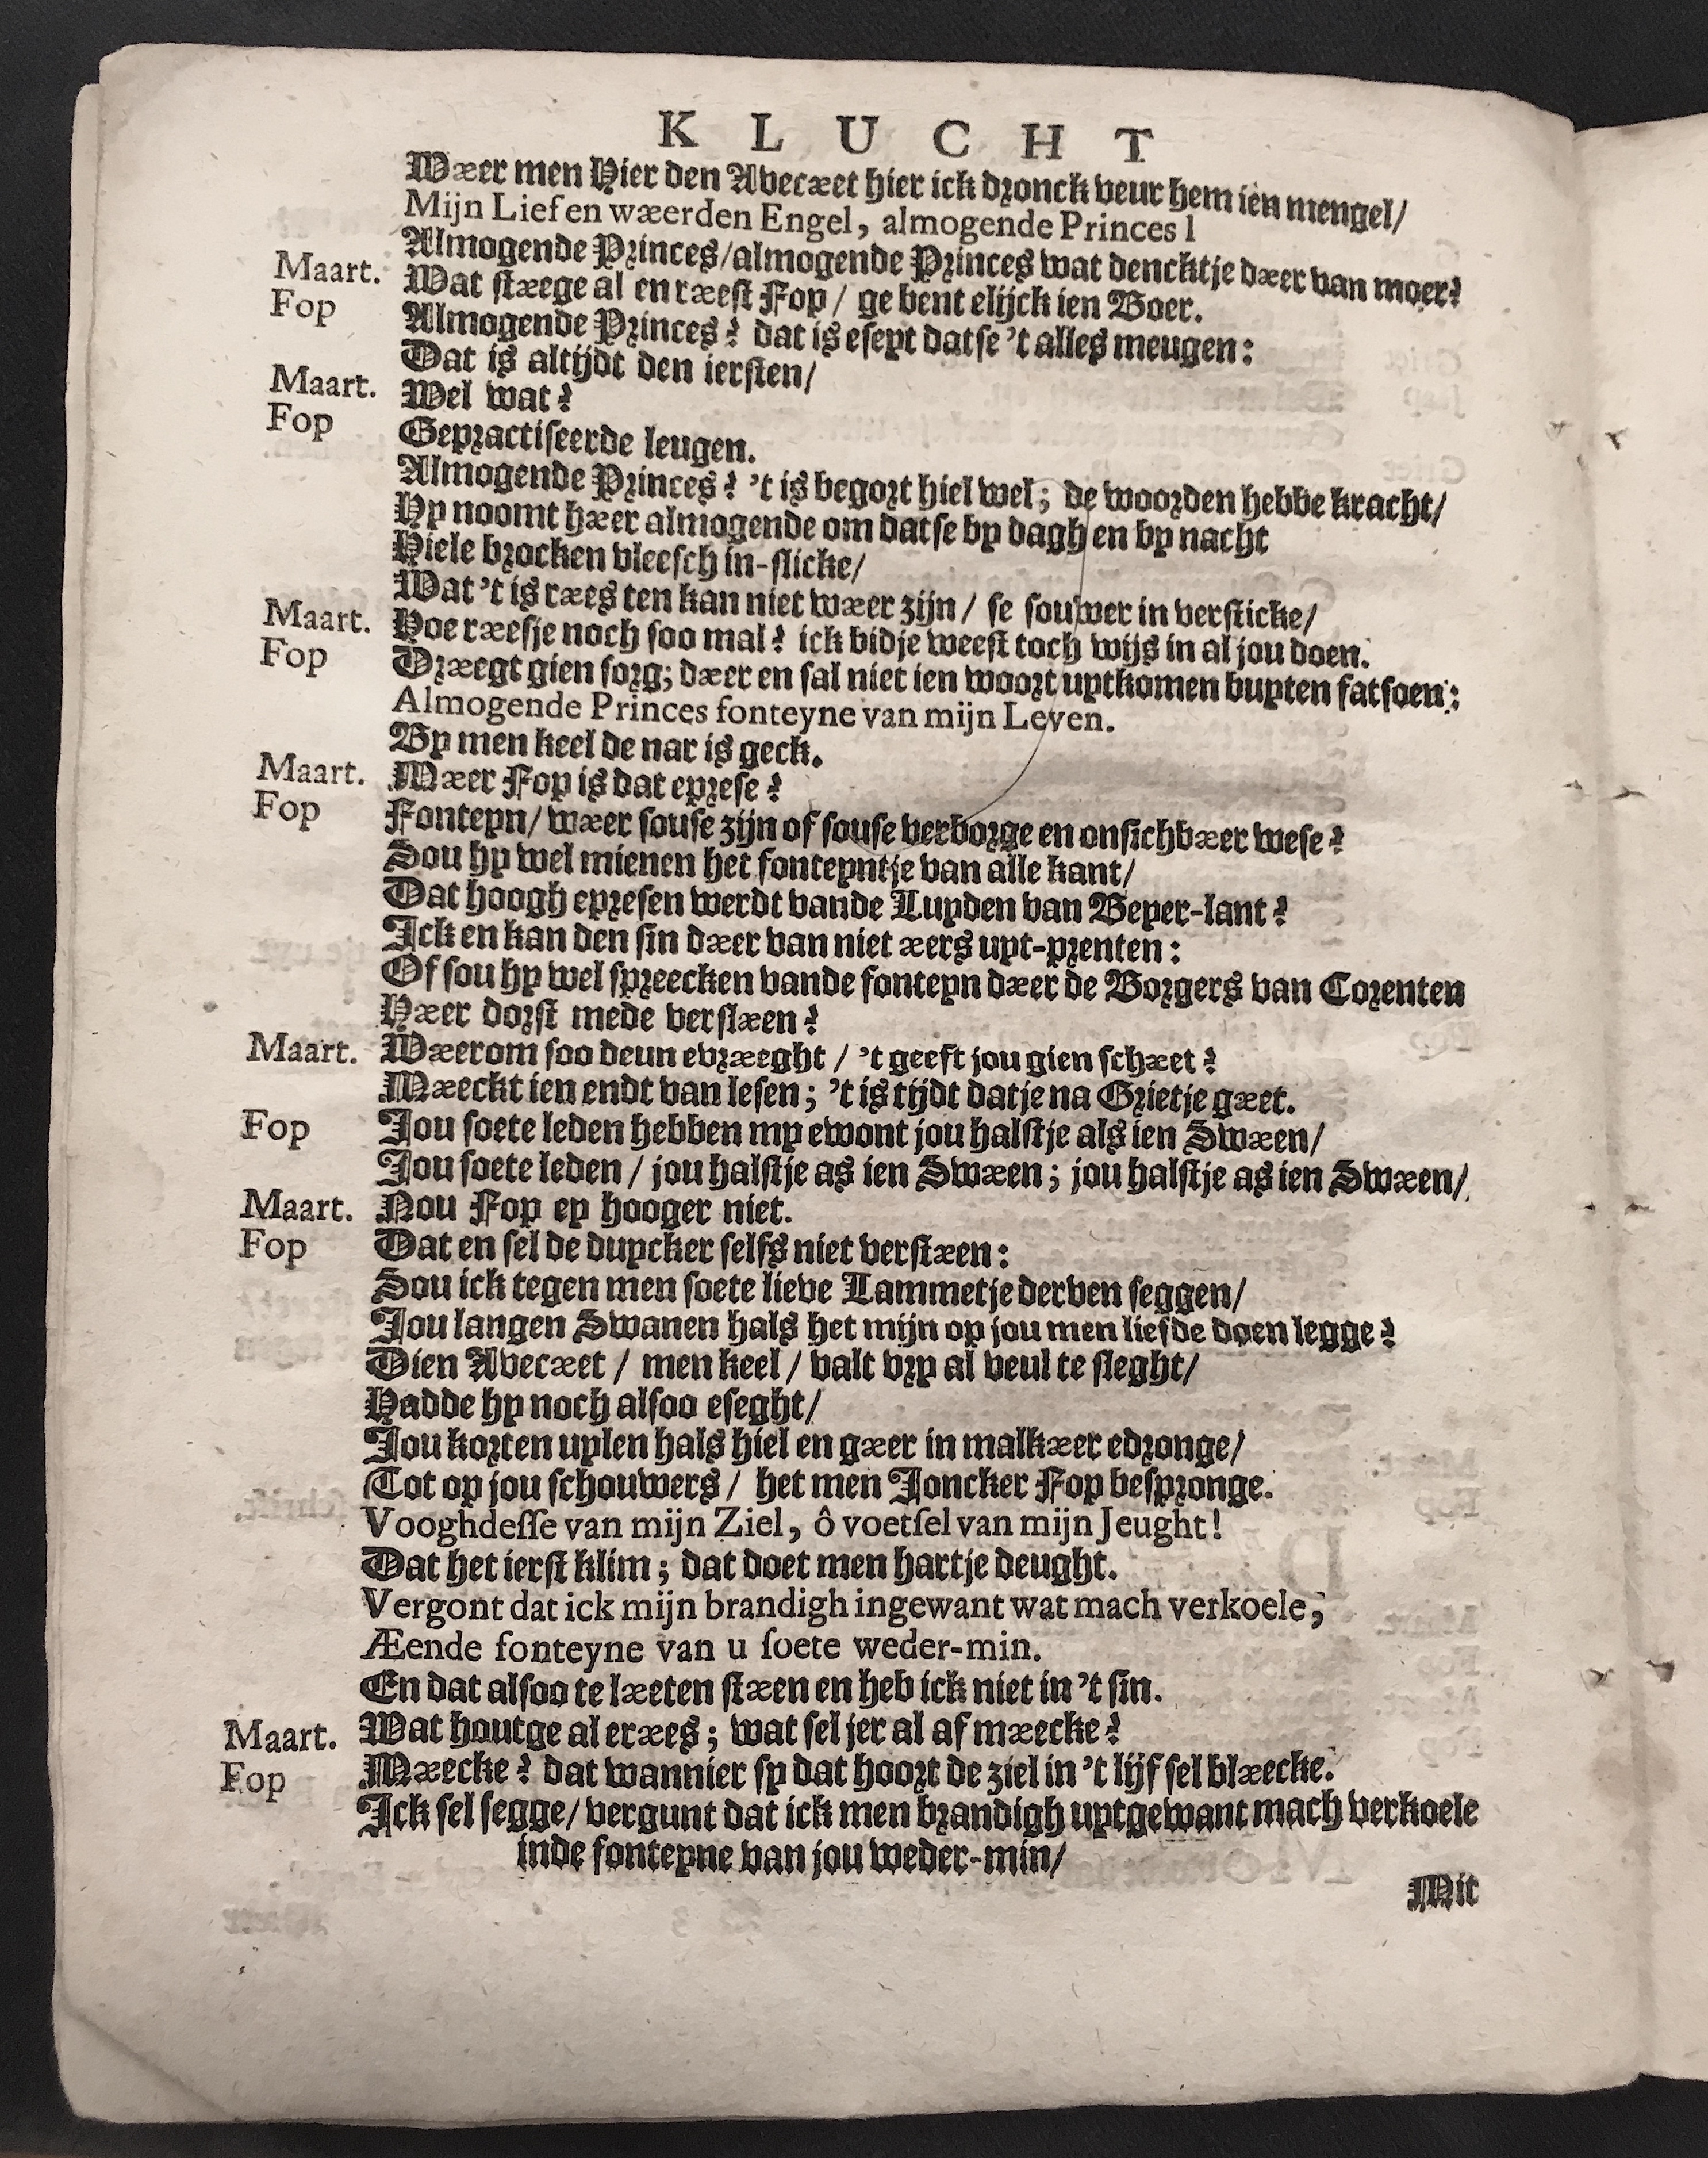 KLUCHT
Wæer men Hier den Avecæet hier ick dronck veur hem ien mengel/
Mijn Lief en wæerden Engel, almogende Princes l
Almogende Princes/almogende Princes wat dencktje dæer van moer?
Maart. Wat stæege al en ræest Fop / ge bent elijck ien Boer.
Fop Almogende Princes? dat is eseyt datse 't alles meugen:
Dat is altijdt den iersten/
Maart. Wel wat?
Fop Gepractiseerde leugen.
Almogende Princes? 't is begort hiel wel; de woorden hebbe kracht/
Hy noomt hæer almogende om datse by dagh en by nacht
Hiele brocken vleesch in-slicke/
Wat 't is ræes ten kan niet wæer zijn / se souwer in versticke/
Maart. Hoe ræesje noch soo mal? ick bidje weest toch wijs in al jou doen.
Fop Dræegt gien sorg; dæer en sal niet ien woort uytkomen buyten fatsoen:
Almogende Princes fonteyne van mijn Leven.
By men keel de nar is geck.
Maart. Mæer Fop is dat eprese?
Fop Fonteyn/ wæer souse zijn of souse verborge en onsichbæer wese?
Sou hy wel mienen het fonteyntje van alle kant/
Dat hoogh epresen werdt vande Luyden van Beyer-lant?
Ick en kan den sin dæer van niet æers uyt-prenten:
Of sou hy wel spreecken vande fonteyn dæer de Borgers van Corenten
Hæer dorst mede verslæen?
Maart. Wæerom soo deun evræeght / 't geeft jou gien schæet?
Mæeckt ien endt van lesen; 't is tijdt datje na Grietje gæet.
Fop Jou soete leden hebben my ewont jou halstje als ien Swæen/
Jou soete leden / jou halstje as ien Swæen; jou halstje as ien Swæen/
Maart. Nou Fop ey hooger niet.
Fop Dat en sel de duycker selfs niet verstæen:
Sou ick tegen men soete lieve Lammetje derven seggen/
Jou langen Swanen hals het mijn op jou men liefde doen legge?
Dien Avecæet / men keel / valt vry al veul te sleght/
Hadde hy noch alsoo eseght/
Jou korten uylen hals hiel en gæer in malkæer edronge/
Tot op jou schouwers / het men Joncker Fop bespronge.
Vooghdesse van mijn Ziel, ô voetsel van mijn Jeught!
Dat het ierst klim; dat doet men hartje deught.
Vergont dat ick mijn brandigh ingewant wat mach verkoele,
Æende fonteyne van u soete weder-min.
En dat alsoo te læeten stæen en heb ick niet in 't sin.
Maart. Wat houtge al eræes; wat sel jer al af mæecke?
Fop Mæecke? dat wannier sy dat hoort de ziel in 't lijf sel blæecke.
Ick sel segge/ vergunt dat ick men brandigh uytgewant mach verkoele
inde fonteyne van jou weder-min/
Mit